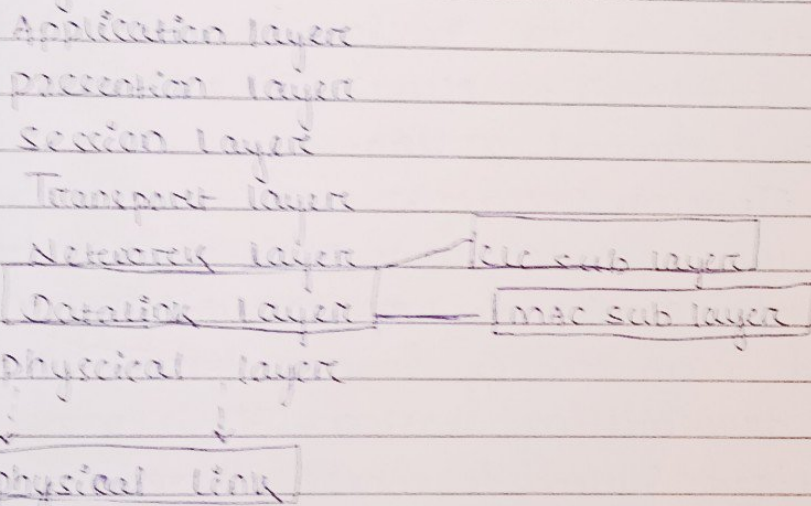 Application layer
presention layer
session layer
Transport layer
Network layer sub layer
Datalink layer mac sub layer
physcical layer
physical link